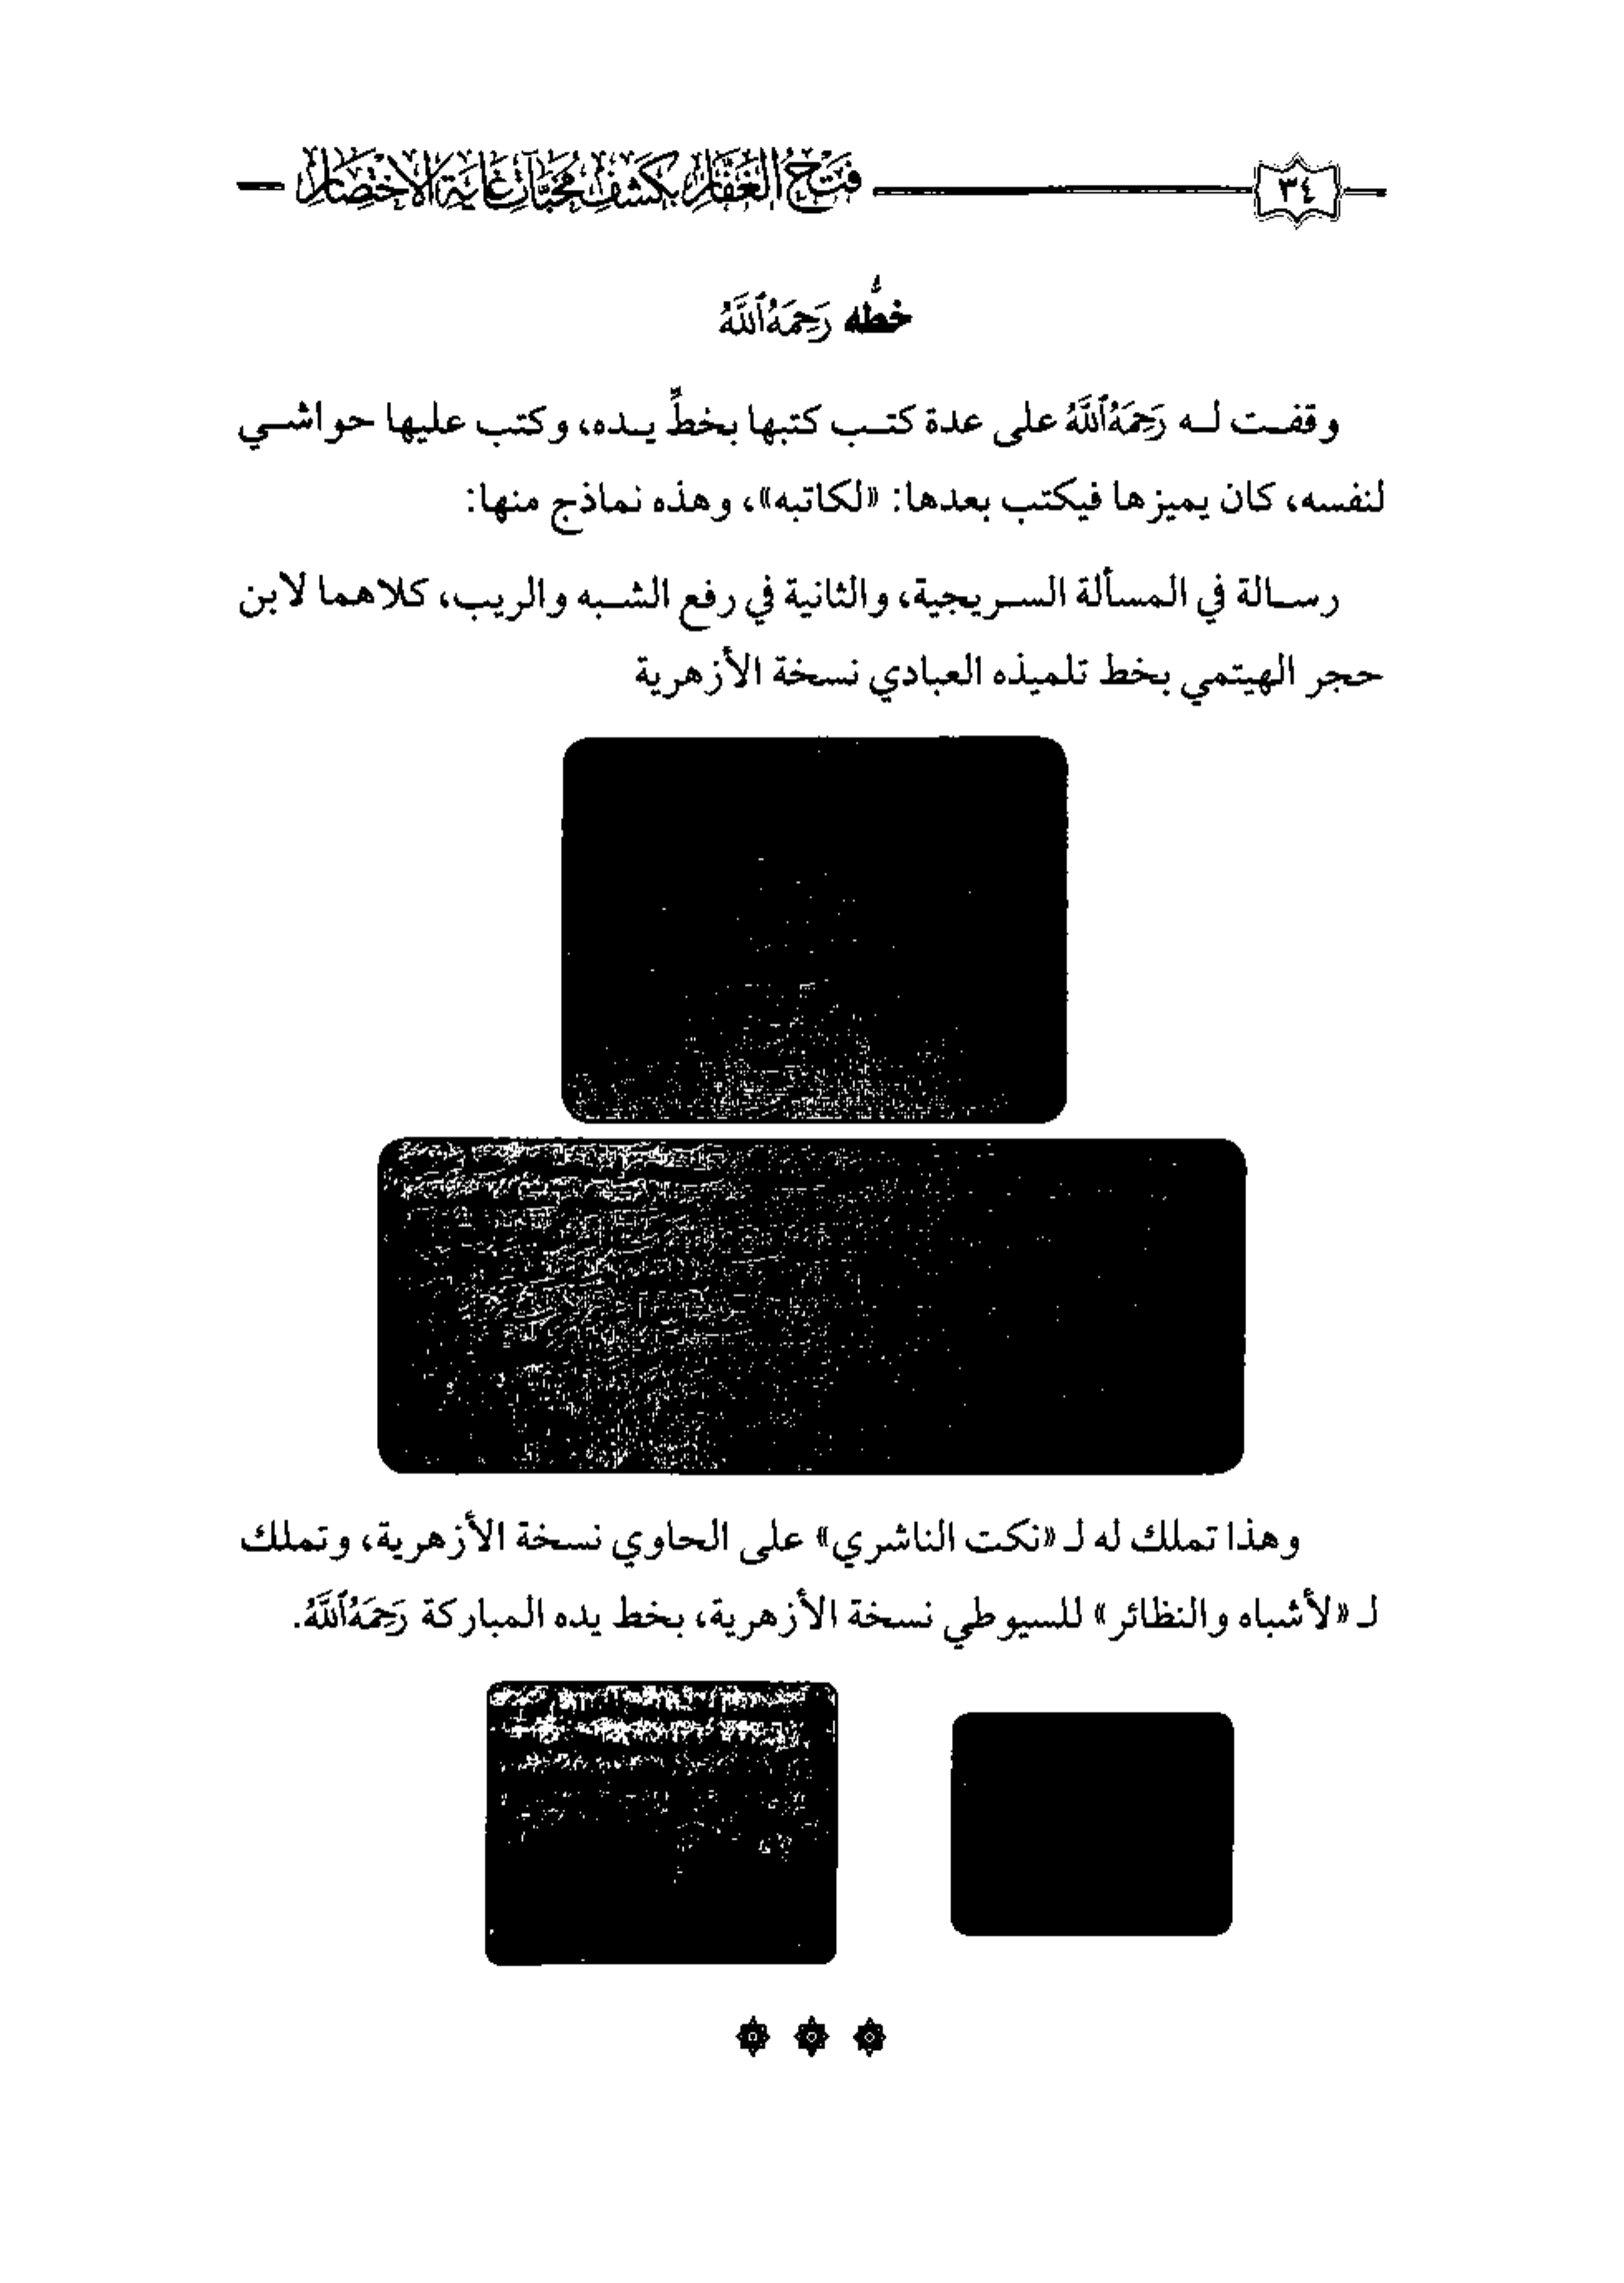 ٣٤
فتح الغفار بكشف مخبآت غاية الاختصار
خطُّه رَحِمَهُ ٱللَّهُ
وقفت له رَحِمَهُ ٱللَّهُ على عدة كتب كتبها بخطِّ يده، وكتب عليها حواشي
لنفسه، كان يميزها فيكتب بعدها: «لكاتبه»، وهذه نماذج منها:
رسالة في المسألة السريجية، والثانية في رفع الشبه والريب، كلاهما لابن
حجر الهيتمي بخط تلميذه العبادي نسخة الأزهرية
وهذا تملك له لـ «نكت الناشري» على الحاوي نسخة الأزهرية، وتملك
لـ «لأشباه والنظائر» للسيوطي نسخة الأزهرية، بخط يده المباركة رَحِمَهُ ٱللَّهُ.